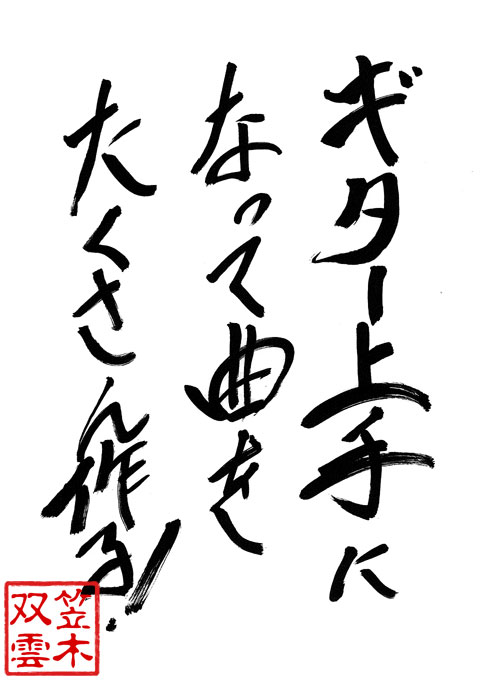 ギター上手に
なって曲を
たくさん作る!
笠木
双雲